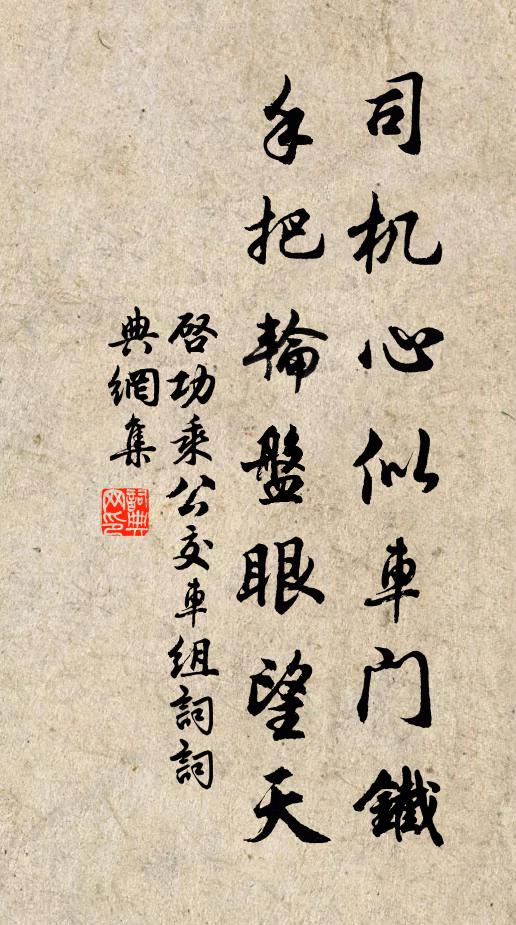 司机心似車門鐵
手把輪盤眼望天
啓功乘公交車组詞詞
典網集
詞典網印